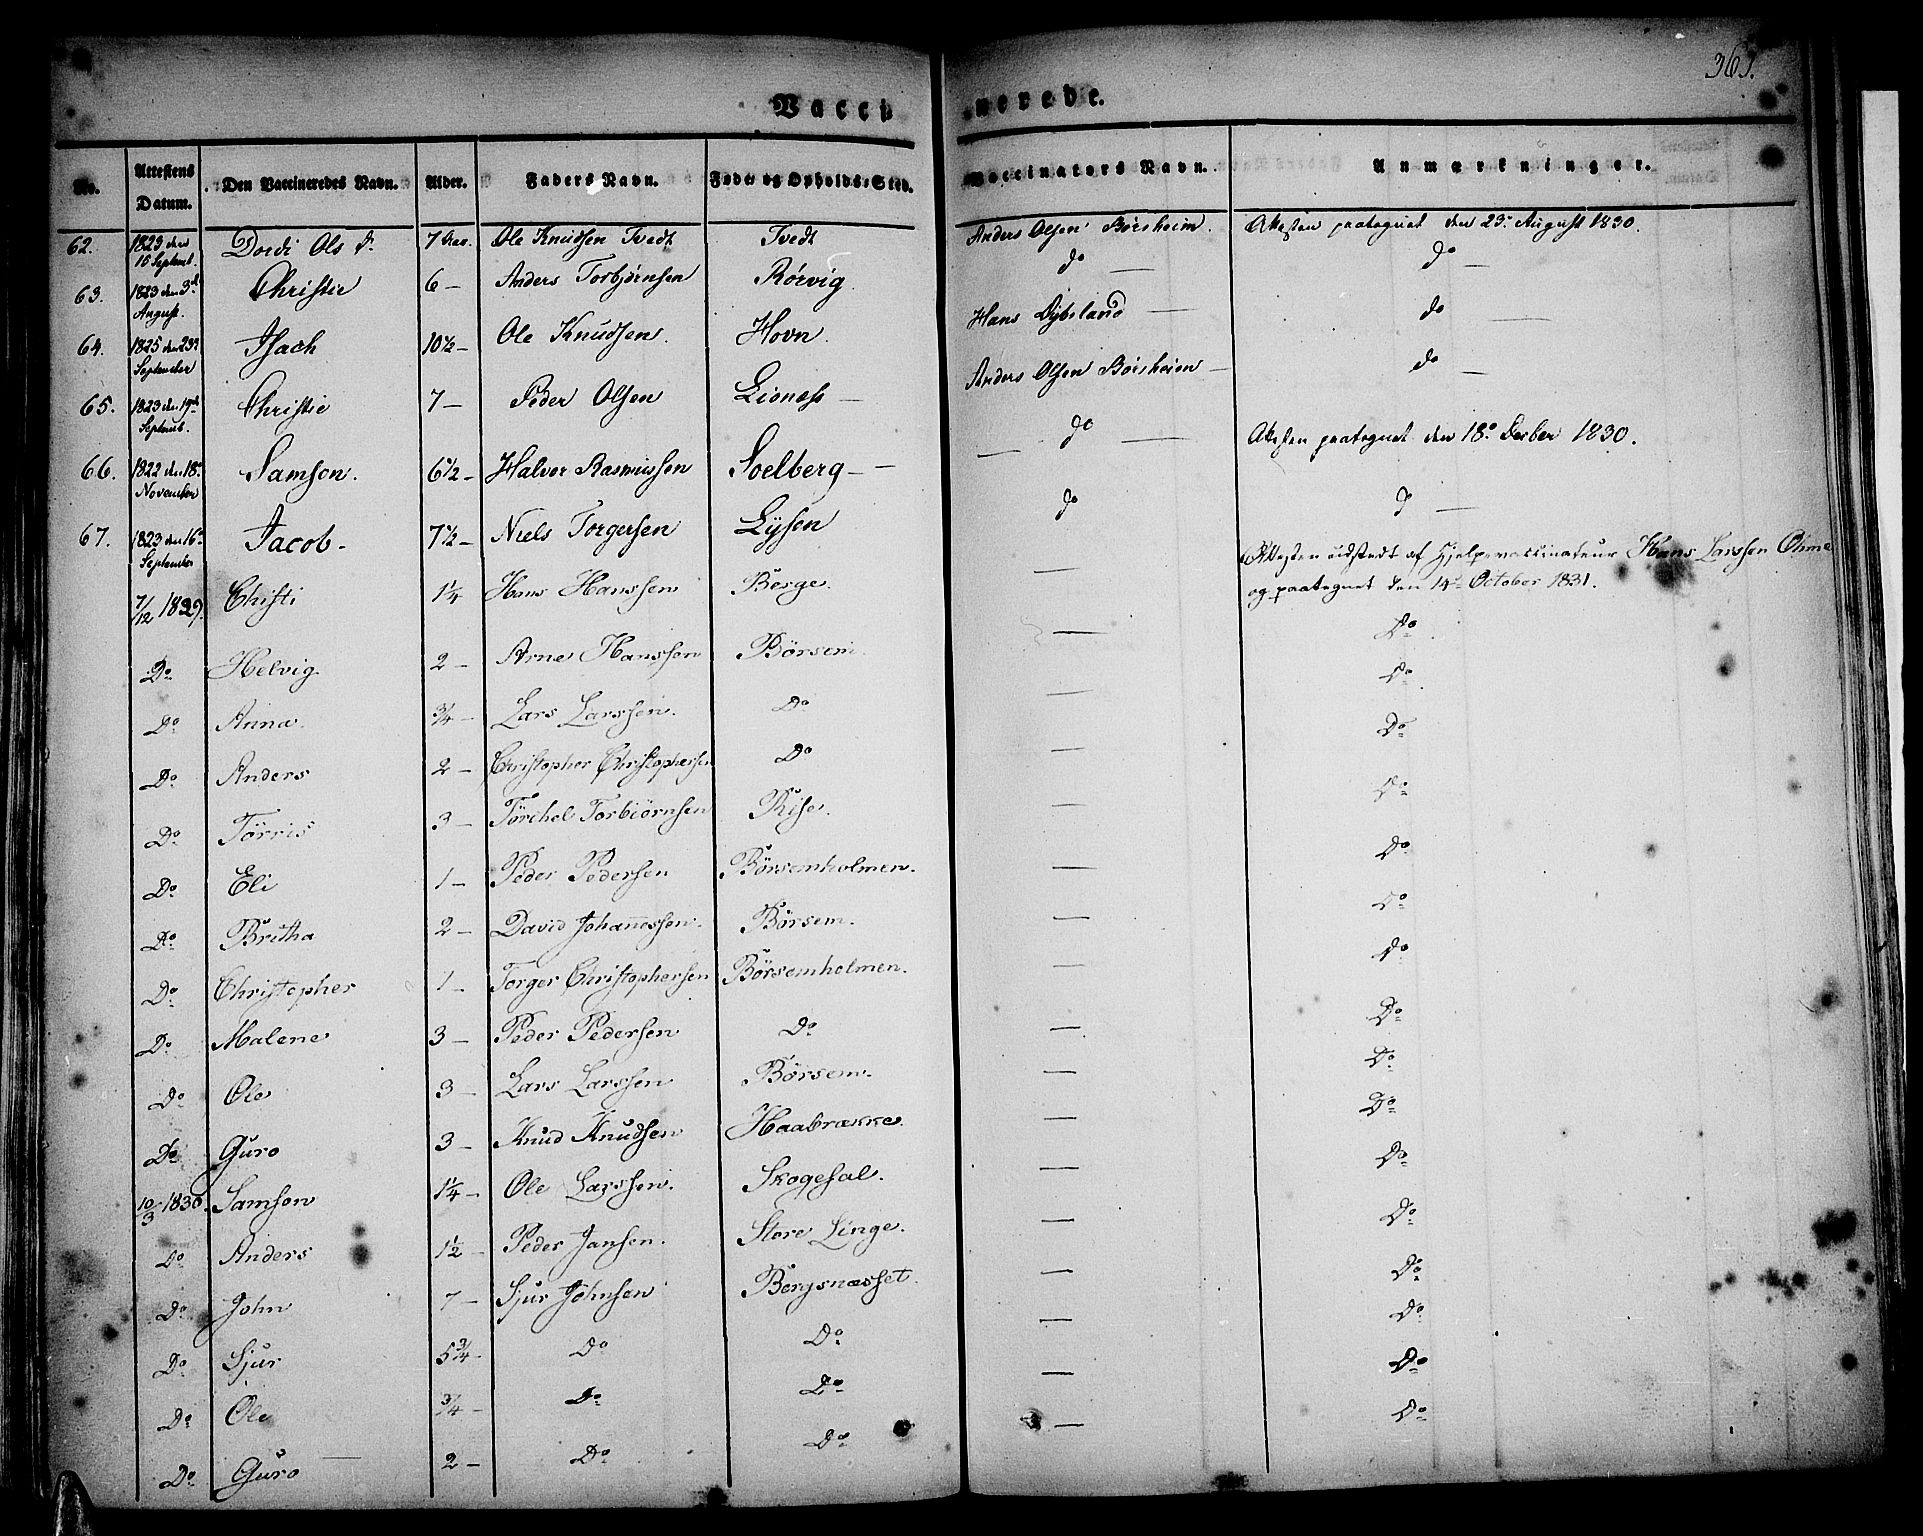 363.
Vacci nerede.
No. Attestens Datum. Den Vaccineredes Navn. Alder. Faders Navn. Føde- og Opholds-Sted. Vaccinators Navn. Anmærkninger.
62. 1823 den 16 Septemb. Dordi Ols dr. 7 Aar. Ole Knudsen Tvedt Tvedt Anders Olsen Børsheim. Attesten paategnet den 23de August 1830.
63. 1823 den 3die August. Christie 6 – Anders Torbjørnsen Rørvig do — do —
64. 1825 den 23de September Isach 10 1/2 – Ole Knudsen. Hovn Hans Dybsland — do —
65. 1823 den 19de Septemb. Christie 7 – Peder Olsen Lionæs – Anders Olsen Børsheim – do —
66. 1822 den 18de November Samson. 6 1/2 – Halvor Rasmussen Soelberg – do — Attesten paategnet den 18de Decbr 1830.
67. 1823 den 16de September Jacob – 7 1/2 – Niels Torgersen Lysen do do —
7/12 1829. Christi 1 1/4 Hans Hanssen Berge. — Attesten udstedt af Hjelpevaccinateur Hans Larssen Ohme
og paategnet den 14de October 1831.
Do Helvig 2 – Arne Hanssen Börsem. — Do
Do Anna. 3/4 – Lars Larssen. Do — Do
Do Anders 2 – Christopher Christophersen Do — Do
Do Törris 3 – Törchel Torbiörnsen Rise. — Do
Do Eli 1 – Peder Pedersen Börsemholmen. — Do
Do Britha 2 – David Johannessen. Börsem. — Do
Do Christopher 1 – Torger Christophersen Börsemholmen. — Do
Do Malene 3 – Peder Pedersen Do — Do
Do Ole 3 – Lars Larssen Börsem. — Do
Do Guro 3 – Knud Knudsen Haabrække. — Do
10/3 1830. Samson 1 1/4 – Ole Larssen. Skogesal. — Do
Do Anders 1 1/2 – Peder Jansen. Store Linge. — Do
Do John 7 – Sjur Johnsen Bergsnæsset. — Do
Do Sjur 5 3/4 – Do Do — Do
Do Ole 3/4 – Do Do — Do
Do Guro 2 – Do Do — Do